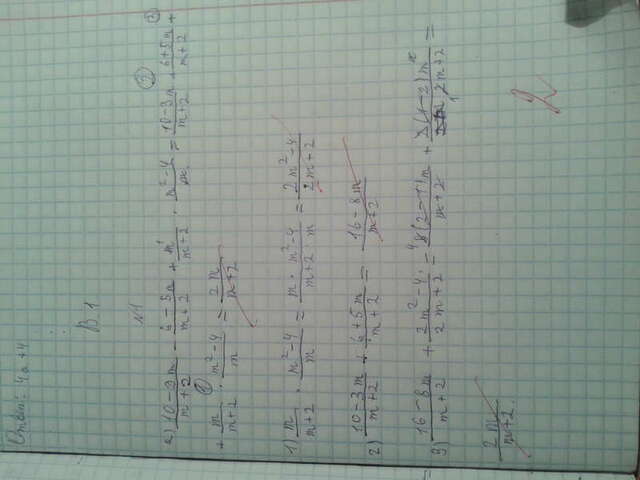 Ответ: 4a+4
В 1
№1
а) \frac{10-3m}{m+2} - \frac{6-5m}{m+2} + \frac{m}{m+2} \cdot \frac{m^2-4}{m} = \frac{10-3m}{m+2} + \frac{6+5m}{m+2} +
+ \frac{m}{m+2} \cdot \frac{m^2-4}{m} = \frac{2m}{m+2}
1) \frac{m}{m+2} \cdot \frac{m^2-4}{m} = \frac{m \cdot m^2-4}{m+2 \cdot m} = \frac{2m^2-4}{2m+2}
2) \frac{10-3m}{m+2} + \frac{6+5m}{m+2} = \frac{16-8m}{m+2}
3) \frac{16-8m}{m+2} + \frac{2m^2-4}{2m+2} = \frac{8(2-1)m}{m+2} + =
\frac{2m}{m+2}.
2